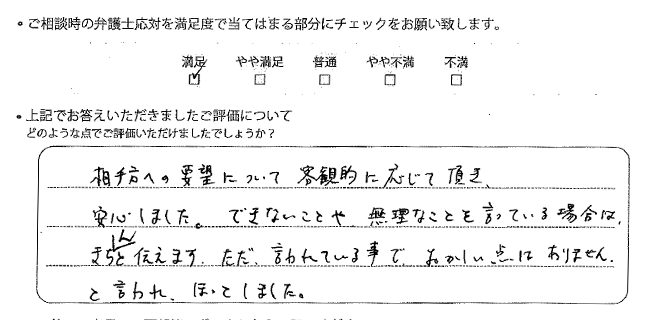 • ご相談時の弁護士応対を満足度で当てはまる部分にチェックをお願い致します。
満足 やや満足 普通 やや不満 不満
☑ ☐ ☐ ☐ ☐
• 上記でお答えいただきましたご評価について
どのような点でご評価いただけましたでしょうか？
相手方への要望について客観的に応じて頂き、
安心しました。できないことや、無理なことを言っている場合は、
きちんと伝えます、ただ、言われている事で、おかしい点はありません。
と言われ、ほっとしました。